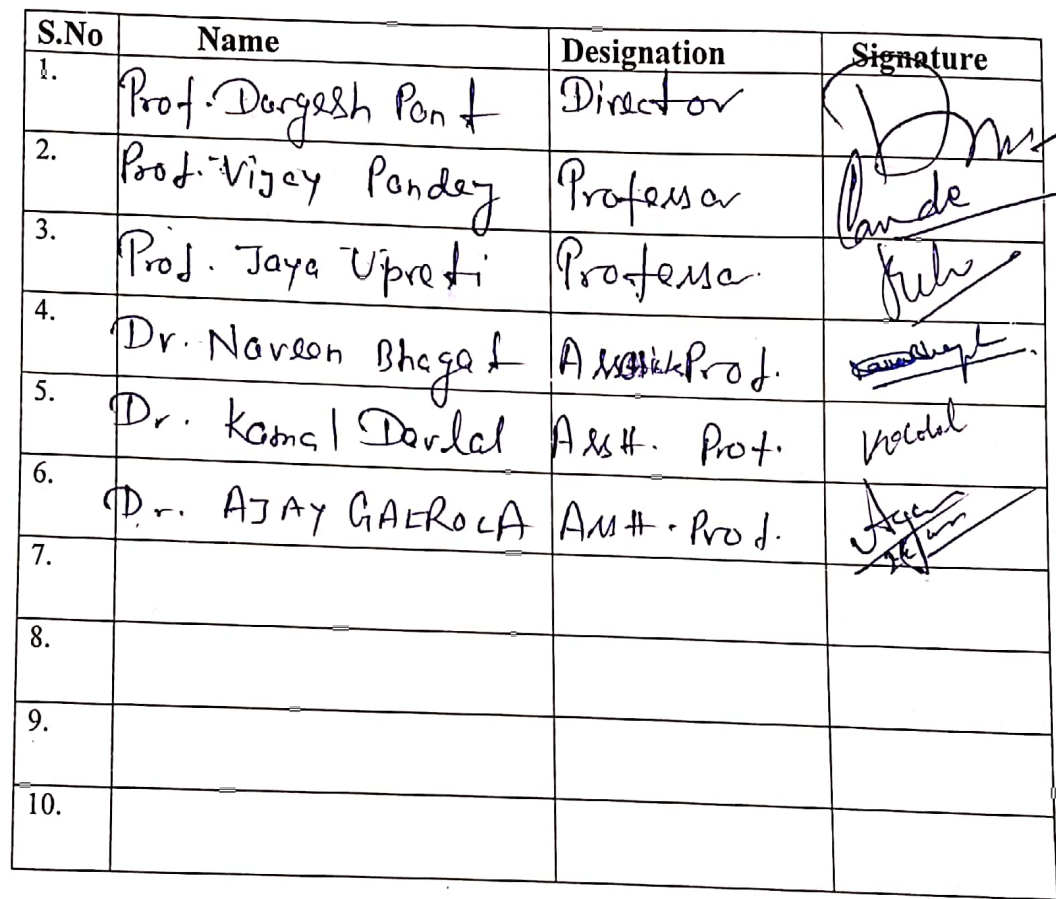 S.No Name Designation Signature
1. Prof. Durgesh Pant Director
2. Prof. Vijay Pandey Professor Pande
3. Prof. Jaya Upreti Professor
4. Dr. Naveen Bhagat Prof.
5. Dr. Kamal Devlal Asstt. Prof. Kdevlal
6. Dr. AJAY GAEROLA Asstt. Prof.
7.
8.
9.
10.